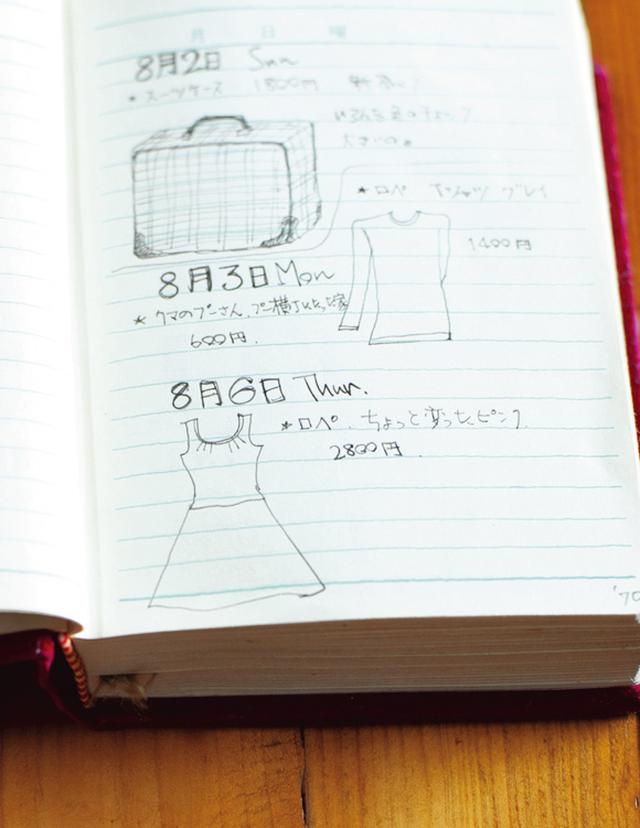 月 日 曜
8月2日 Sun
* スーツケース 1800円
* ロペ Tシャツ グレイ
1400円
8月3日 Mon
* クマのプーさん、プー横丁にたった家
600円.
8月6日 Thur.
* ロペ. ちょっと変ったピンク.
2800円.
'70